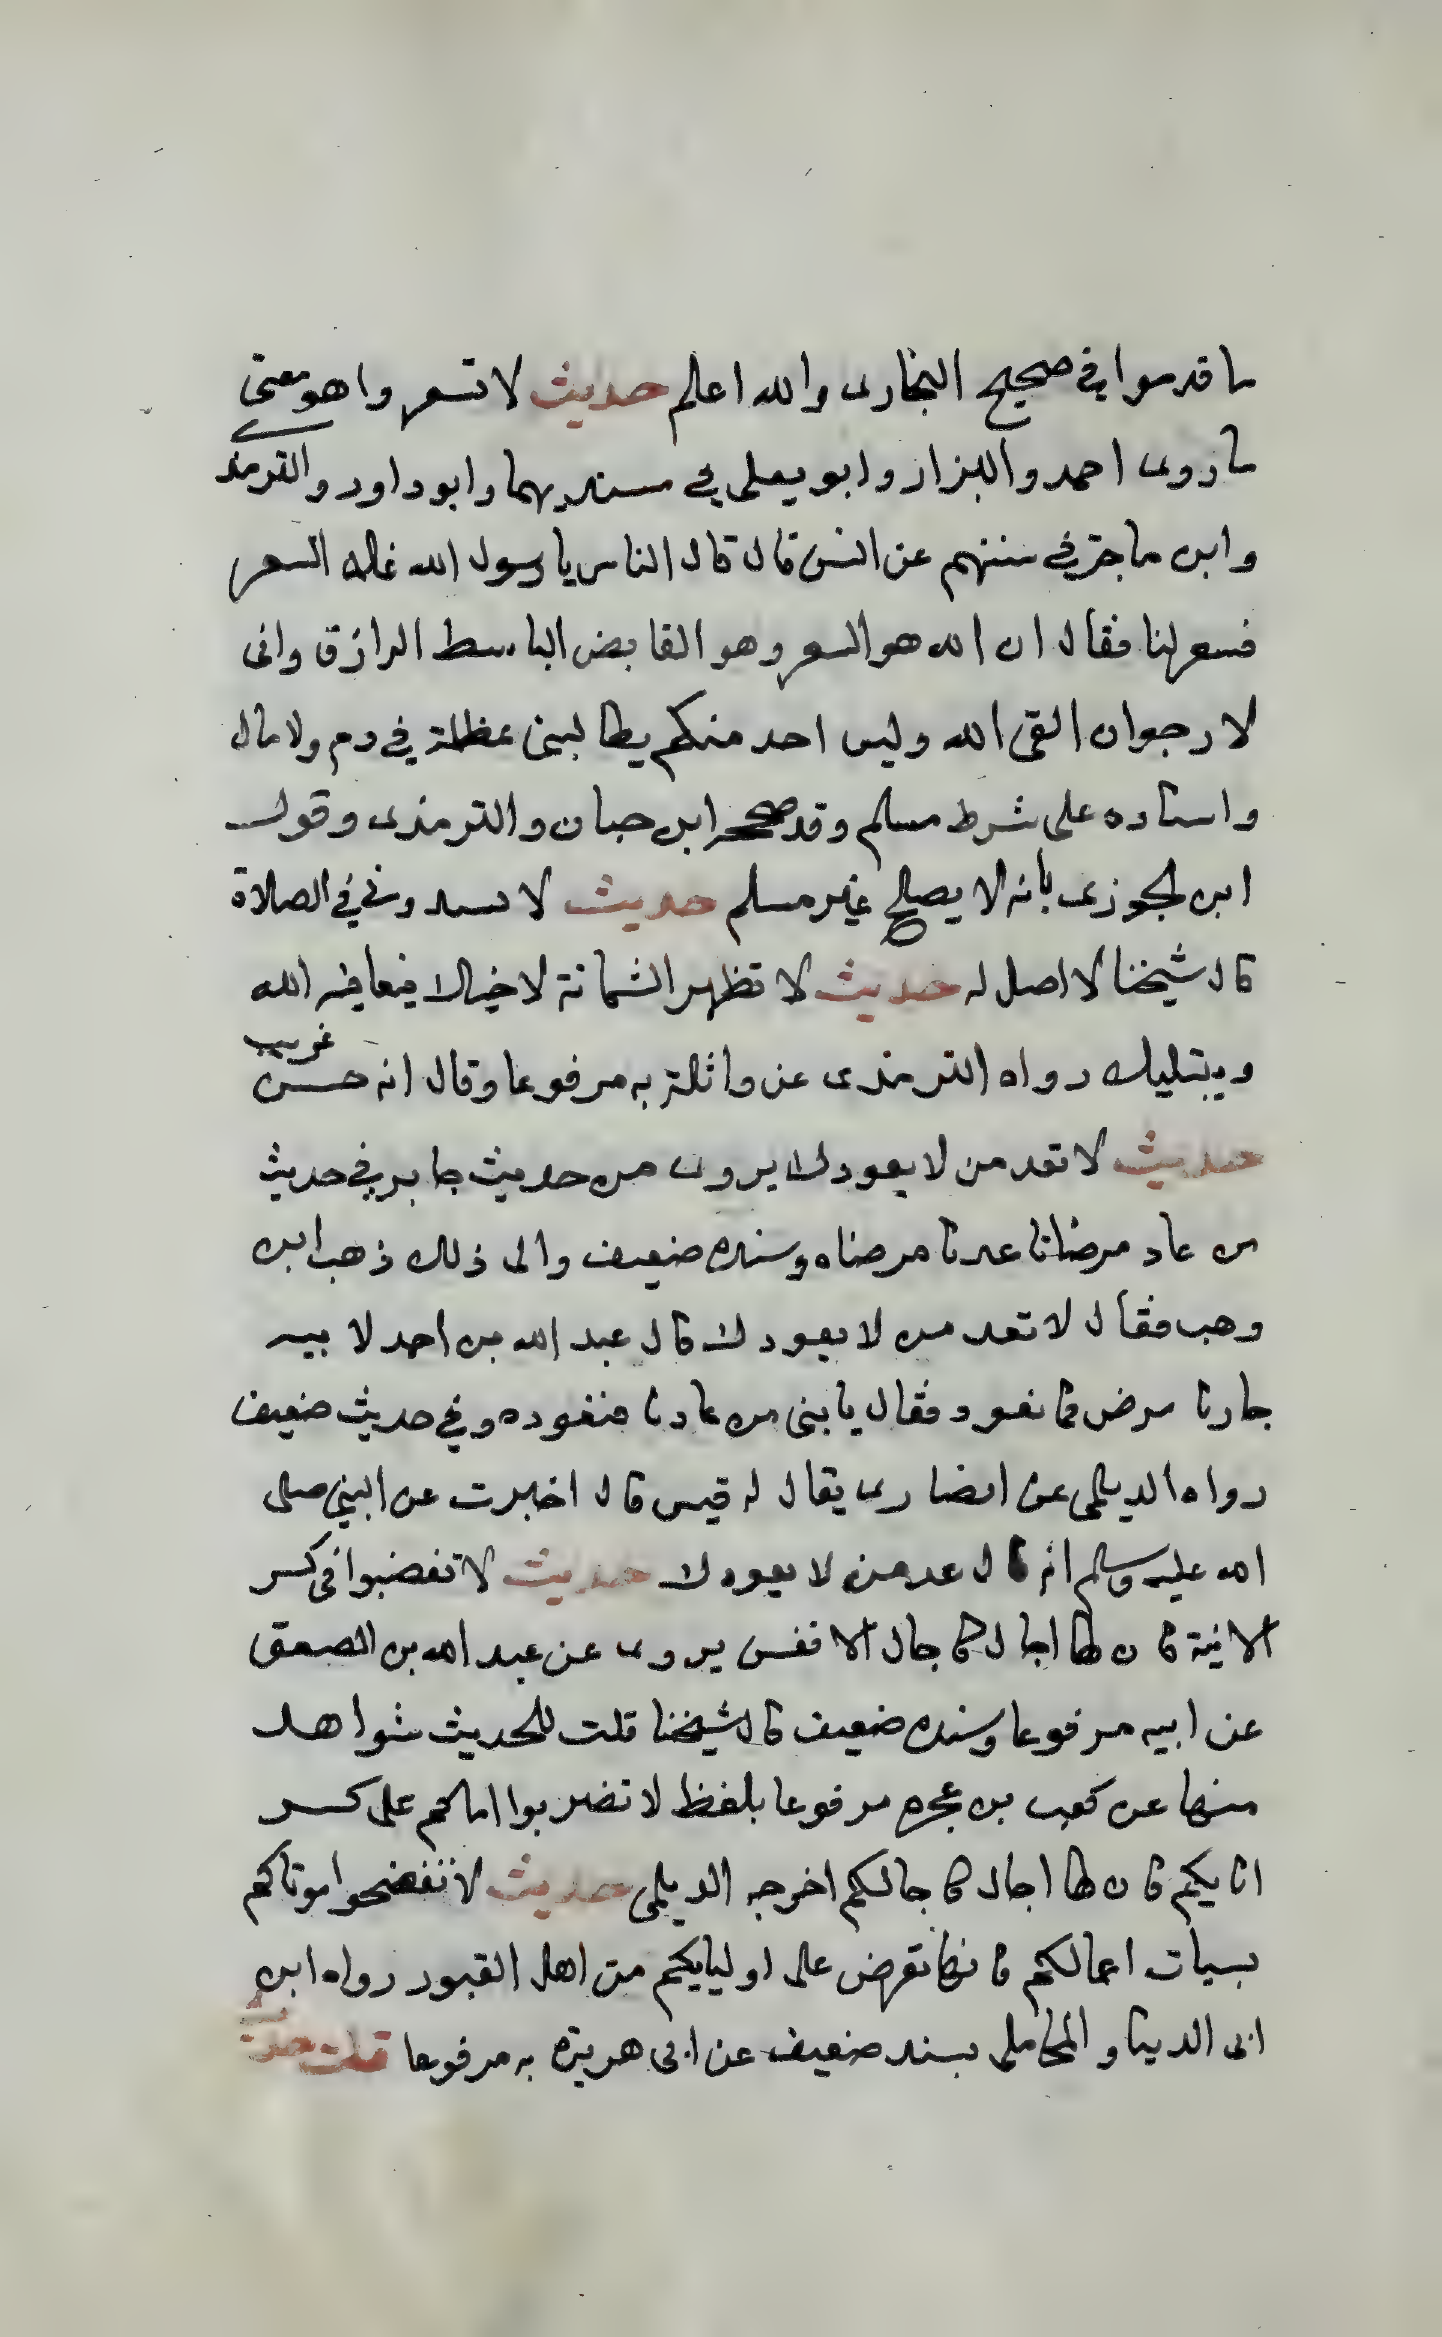 ما قدموا في صحيح البخاري والله اعلم حديث لا تسعروا هو معنى
ما روى احمد والبزار وابو يعلى في مسنديهما وابو داود والترمذي
وابن ماجة في سننهم عن انس قال قال الناس يا رسول الله غلا السعر
فسعر لنا فقال ان الله هو المسعر وهو القابض الباسط الرازق واني
لارجو ان القى الله وليس احد منكم يطالبني بمظلمة في دم ولا مال
واسناده على شرط مسلم وقد صححه ابن حبان والترمذي وقول
ابن الجوزي بانه لا يصلح غير مسلم حديث لا تسيدوني في الصلاة
قال شيخنا لا اصل له حديث لا تظهر الشماتة لاخيك فيعافيه الله
ويبتليك رواه الترمذي عن واثلة به مرفوعا وقال انه حسن غريب
حديث لا تعد من لا يعودك يروى من حديث جابر في حديث
من عاد مرضانا عدنا مرضاه وسنده ضعيف والى ذلك ذهب ابن
وهب فقال لا تعد من لا يعودك قال عبد الله بن احمد لابيه
جارنا مرض فما نعود فقال يا بني من عادنا فنعوده وفي حديث ضعيف
رواه الديلمي عن انصاري يقال له قيس قال اخبرت عن النبي صلى
الله عليه وسلم انه قال عد من لا يعودك حديث لا تغضبوا في كسر
الانية فان لها اجالا كاجال الانفس يروى عن عبد الله بن الصعق
عن ابيه مرفوعا وسنده ضعيف قال شيخنا قلت للحديث شواهد
منها عن كعب بن عجره مرفوعا بلفظ لا تضربوا اماكم على كسر
انايكم فان لها اجالا كاجالكم اخرجه الديلمي حديث لا تفضحوا موتاكم
بسيات اعمالكم فانها تعرض على اوليايكم من اهل القبور رواه ابن
ابى الدينا والمحاملي بسند ضعيف عن ابى هريرة به مرفوعا قلت حديث